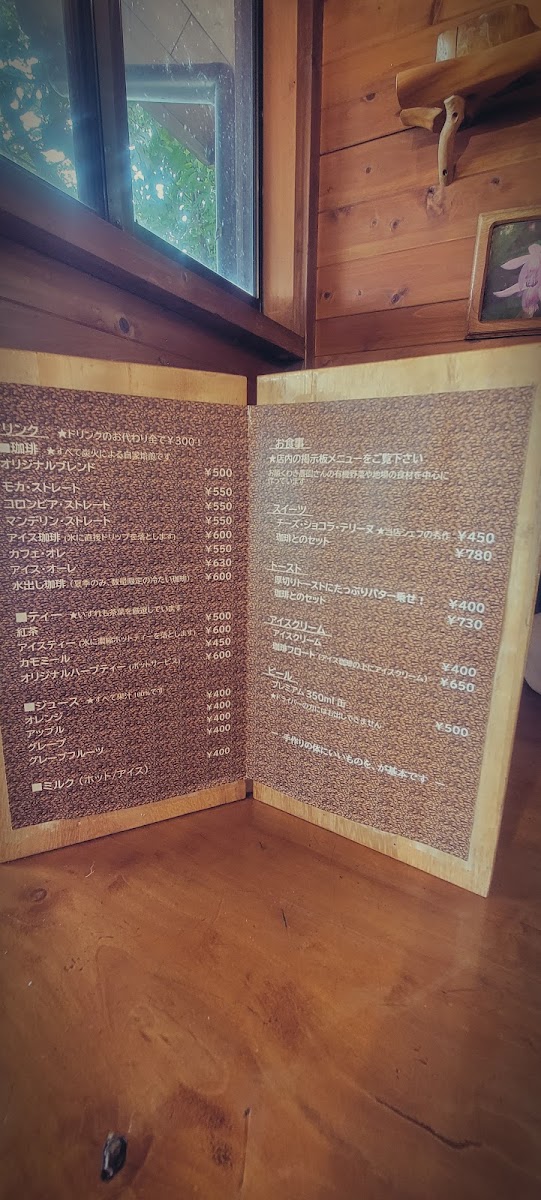 リンク ★ドリンクのお代わり全て¥300！
■珈琲 ★すべて炭火による自家焙煎です
オリジナルブレンド ¥500
モカ・ストレート ¥550
コロンビア・ストレート ¥550
マンデリン・ストレート ¥550
アイス珈琲 (氷に直接ドリップを落とします) ¥600
カフェ・オレ ¥550
アイス・オーレ ¥630
水出し珈琲 (夏季のみ、数量限定の冷たい珈琲) ¥600
■ティー ★いずれも茶葉を厳選しています
紅茶 ¥500
アイスティー (氷に濃縮ホットティーを落とします) ¥600
カモミール ¥450
オリジナルハーブティー (ポットサービス) ¥600
■ジュース ★すべて果汁100%です
オレンジ ¥400
アップル ¥400
グレープ ¥400
グレープフルーツ ¥400
■ミルク (ホット/アイス) ¥400
お食事
★店内の掲示板メニューをご覧下さい
お農園さんの有機野菜や地場の食材を中心に
作っています
スイーツ
チーズ・ショコラ・テリーヌ ★当店シェフの名作 ¥450
珈琲とのセット ¥780
トースト
厚切りトーストにたっぷりバター乗せ！ ¥400
珈琲とのセット ¥730
アイスクリーム
アイスクリーム ¥400
珈琲フロート (アイス珈琲の上にアイスクリーム) ¥650
ビール
プレミアム 350ml 缶 ¥500
★ドライバーの方にはお出しできません
ー 手作りの体にいいものを、が基本です ー